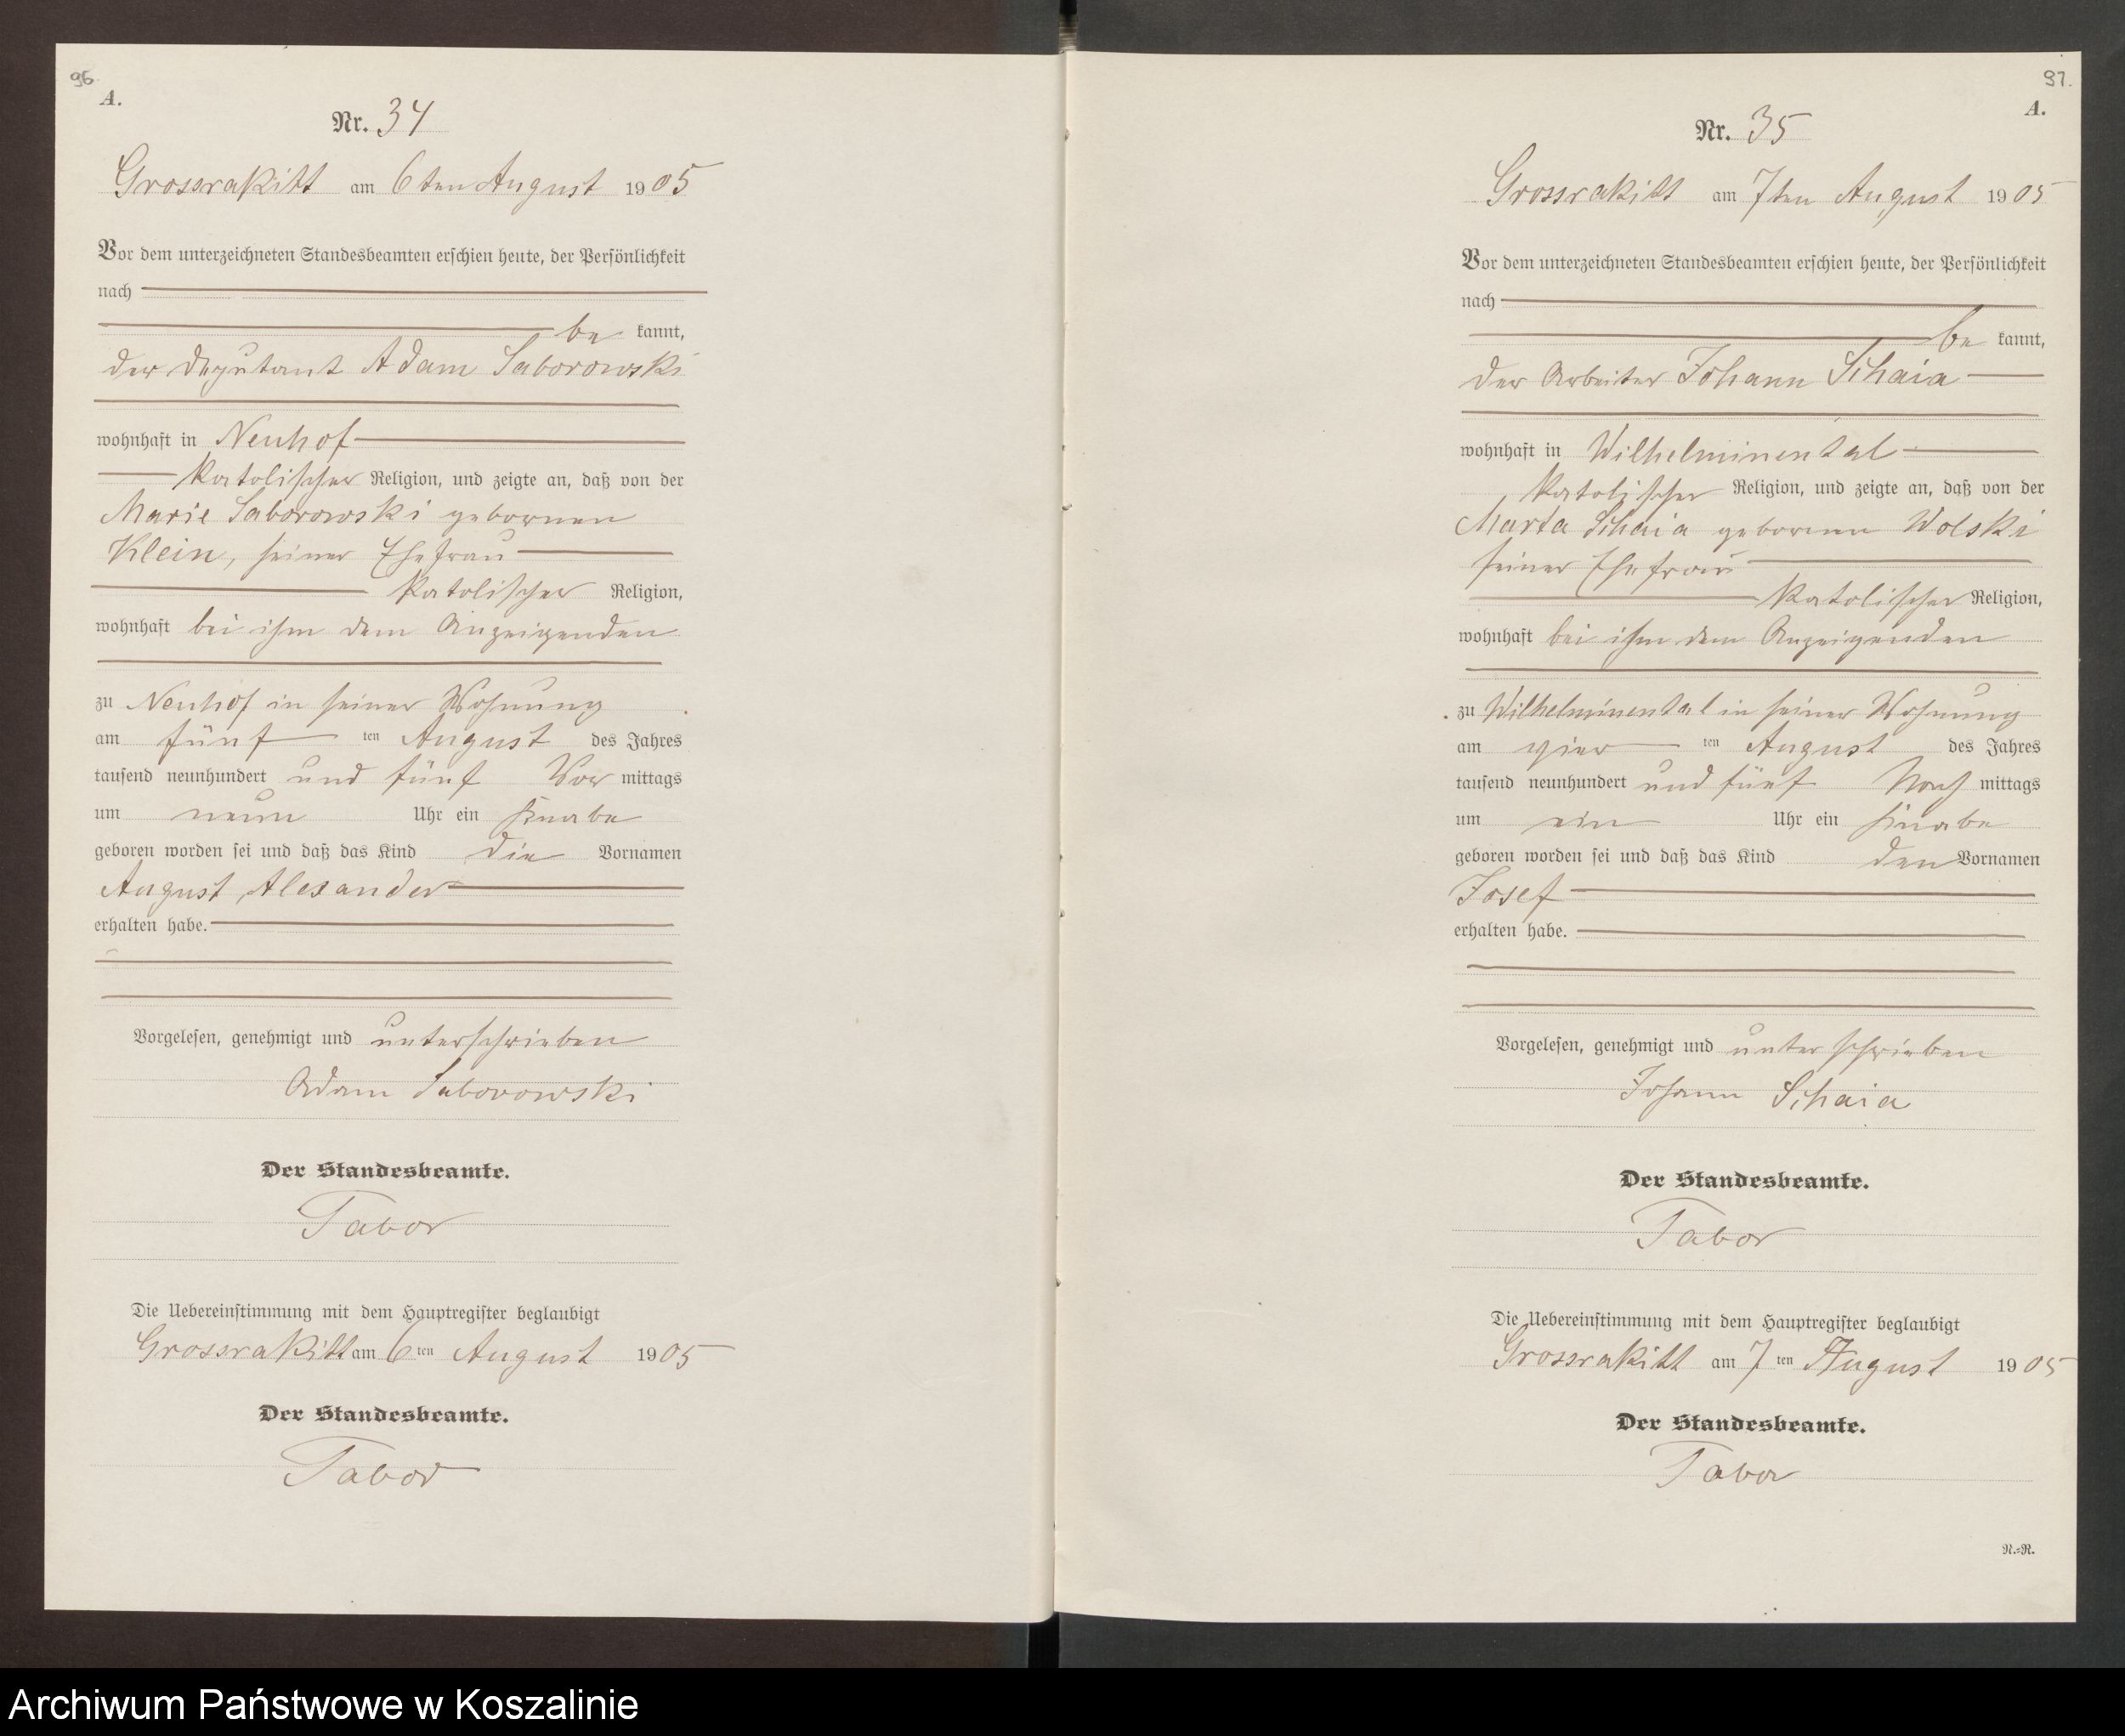 96.
A.
Nr. 34
Grossrakitt am 6ten August 1905
Vor dem unterzeichneten Standesbeamten erschien heute, der Persönlichkeit
nach
be kannt,
der Deputant Adam Saborowski
wohnhaft in Neuhof
katolischer Religion, und zeigte an, daß von der
Marie Saborowski gebornen
Klein, seiner Ehefrau
katolischer Religion,
wohnhaft bei ihm dem Anzeigenden
zu Neuhof in seiner Wohnung
am fünf ten August des Jahres
tausend neunhundert und fünf Vor mittags
um neun Uhr ein Knabe
geboren worden sei und daß das Kind die Vornamen
August, Alexander
erhalten habe.
Vorgelesen, genehmigt und unterschrieben
Adam Saborowski
Der Standesbeamte.
Tabor
Die Uebereinstimmung mit dem Hauptregister beglaubigt
Grossrakitt am 6ten August 1905
Der Standesbeamte.
Tabor
97.
A.
Nr. 35
Grossrakitt am 7ten August 1905
Vor dem unterzeichneten Standesbeamten erschien heute, der Persönlichkeit
nach
be kannt,
der Arbeiter Johann Schaia
wohnhaft in Wilhelminental
katolischer Religion, und zeigte an, daß von der
Marta Schaia gebornen Wolski
seiner Ehefrau
katolischer Religion,
wohnhaft bei ihm dem Anzeigenden
zu Wilhelminental in seiner Wohnung
am vier ten August des Jahres
tausend neunhundert und fünf Nach mittags
um ein Uhr ein Knabe
geboren worden sei und daß das Kind den Vornamen
Josef
erhalten habe.
Vorgelesen, genehmigt und unterschrieben
Johann Schaia
Der Standesbeamte.
Tabor
Die Uebereinstimmung mit dem Hauptregister beglaubigt
Grossrakitt am 7ten August 1905
Der Standesbeamte.
Tabor
N.=R.
Archiwum Państwowe w Koszalinie